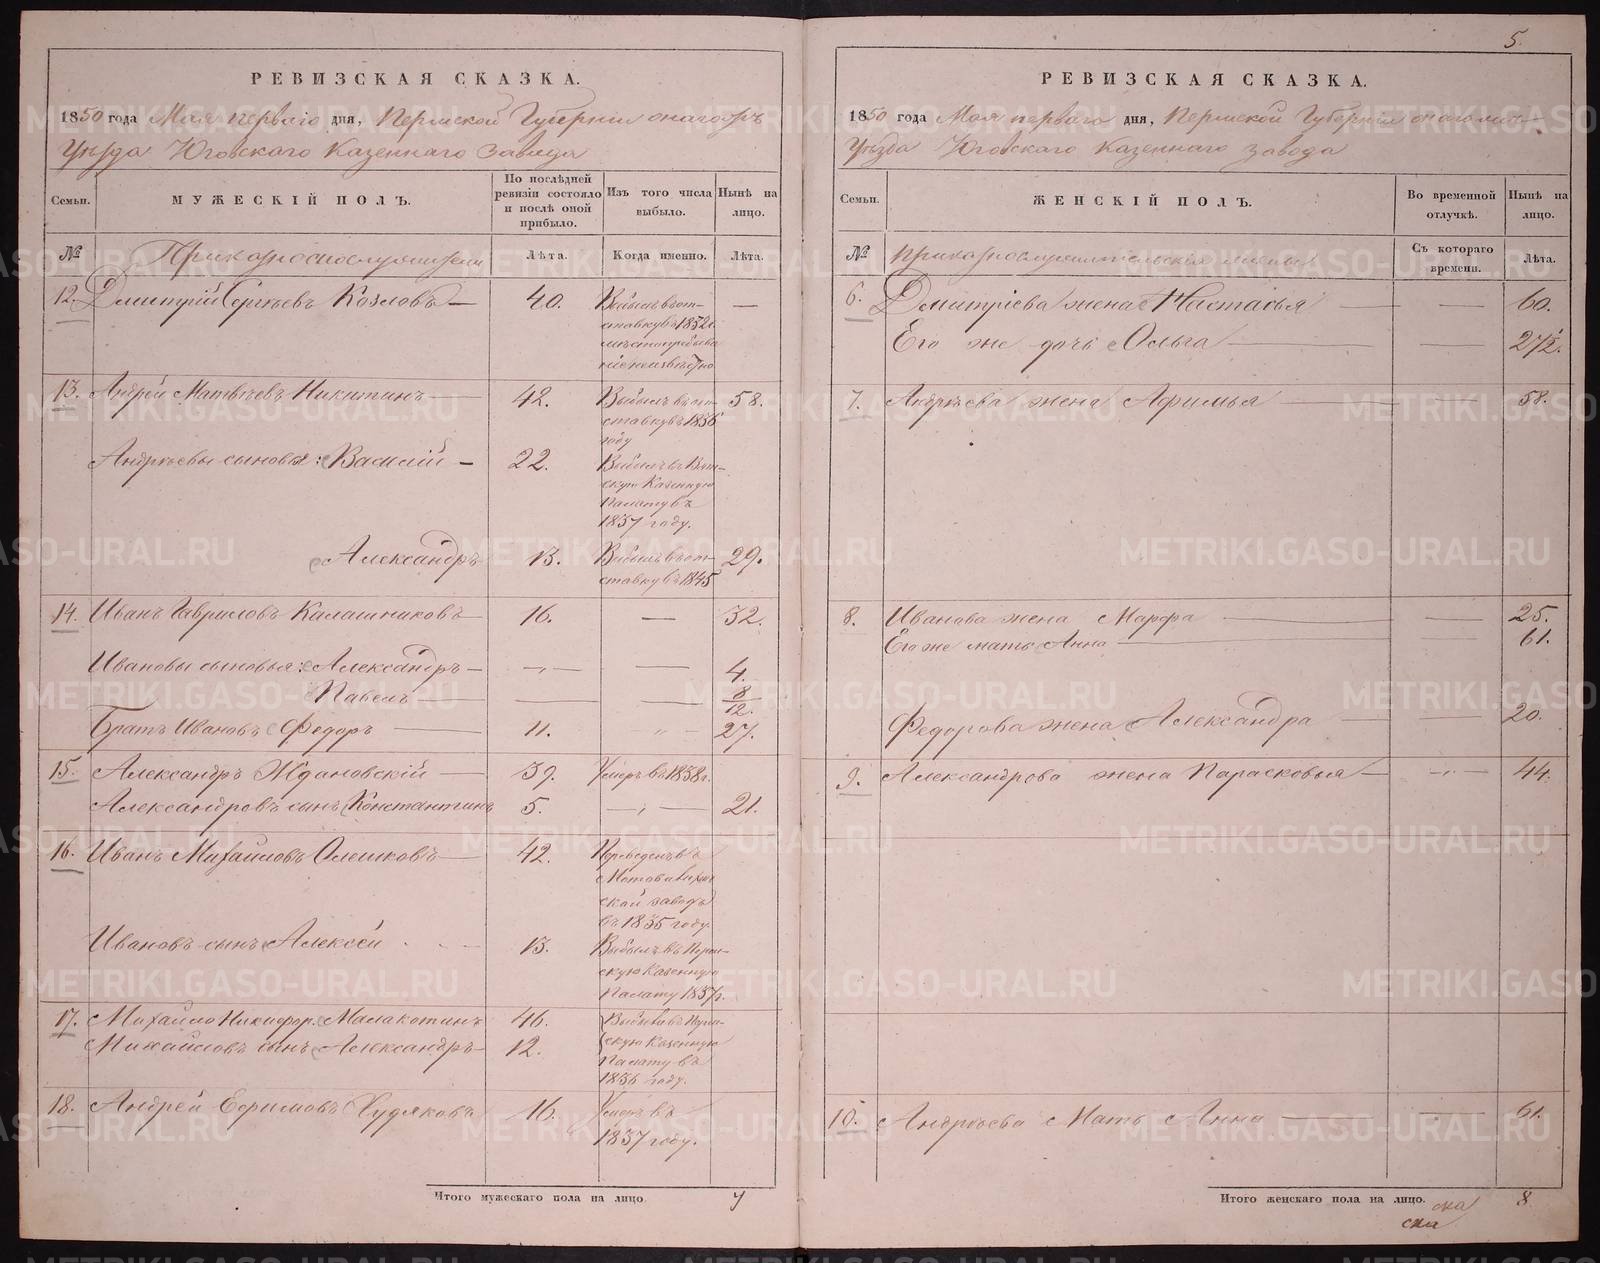 РЕВИЗСКАЯ СКАЗКА.
1850 года Мая перваго дня, Пермской Губерніи онагожъ
Уѣзда Юговскаго Казеннаго Завода
Семьи.
МУЖЕСКІЙ ПОЛЪ.
По послѣдней ревизіи состояло и послѣ оной прибыло.
Изъ того числа выбыло.
Нынѣ на лицо.
№
Лѣта.
Когда именно.
Лѣта.
12. Дмитрій Сергѣевъ Козловъ — 40. Выбылъ въ от-
ставку въ 1832 г.
мѣстопребыва
ніе неизвѣстно
13. Андрей Матвѣевъ Никитинъ 42. Выбылъ въ от- 58.
ставку въ 1836
году
Андреевы сыновья: Василій — 22. Выбылъ въ Вят-
скую Казенную
Палату въ
1837 году.
Александръ 13. Выбылъ въ от- 29.
ставку въ 1845
14. Иванъ Гавриловъ Калашниковъ 16. — 32.
Ивановы сыновья: Александръ — 4.
Павелъ — 8/12.
Братъ Ивановъ Федоръ 11. 27.
15. Александръ Ждановскій 39. Умеръ въ 1838 г.
Александровъ сынъ Константинъ 5. 21.
16. Иванъ Михайловъ Олешковъ 42. Переведенъ въ
Мотовилихин
ской заводъ
въ 1835 году.
Ивановъ сынъ Алексѣй 13. Выбылъ въ Перм-
скую Казенную
Палату 1837 г.
17. Михайло Никифор. Малакотинъ 46. Выбыли въ Перм-
Михайловъ сынъ Александръ 12. скую Казенную
Палату въ
1836 году.
18. Андрей Ефимовъ Худяковъ 16. Умеръ въ
1837 году.
Итого мужескаго пола на лицо. 7
5.
РЕВИЗСКАЯ СКАЗКА.
1850 года Мая перваго дня, Пермской Губерніи
Уѣзда Юговскаго Казеннаго завода
Семьи.
ЖЕНСКІЙ ПОЛЪ.
Во временной отлучкѣ.
Нынѣ на лицо.
№
Съ котораго времени.
Лѣта.
6. Дмитріева жена Настасья — 60.
Его же дочь Ольга — 27½.
7. Андрѣева жена Афимья — 58.
8. Иванова жена Марфа — 25.
Его же мать Анна — 61.
Федорова жена Александра — 20.
9. Александрова жена Парасковья — 44.
10. Андрѣева Мать Анна — 61.
Итого женскаго пола на лицо. 8
METRIKI.GASO-URAL.RU